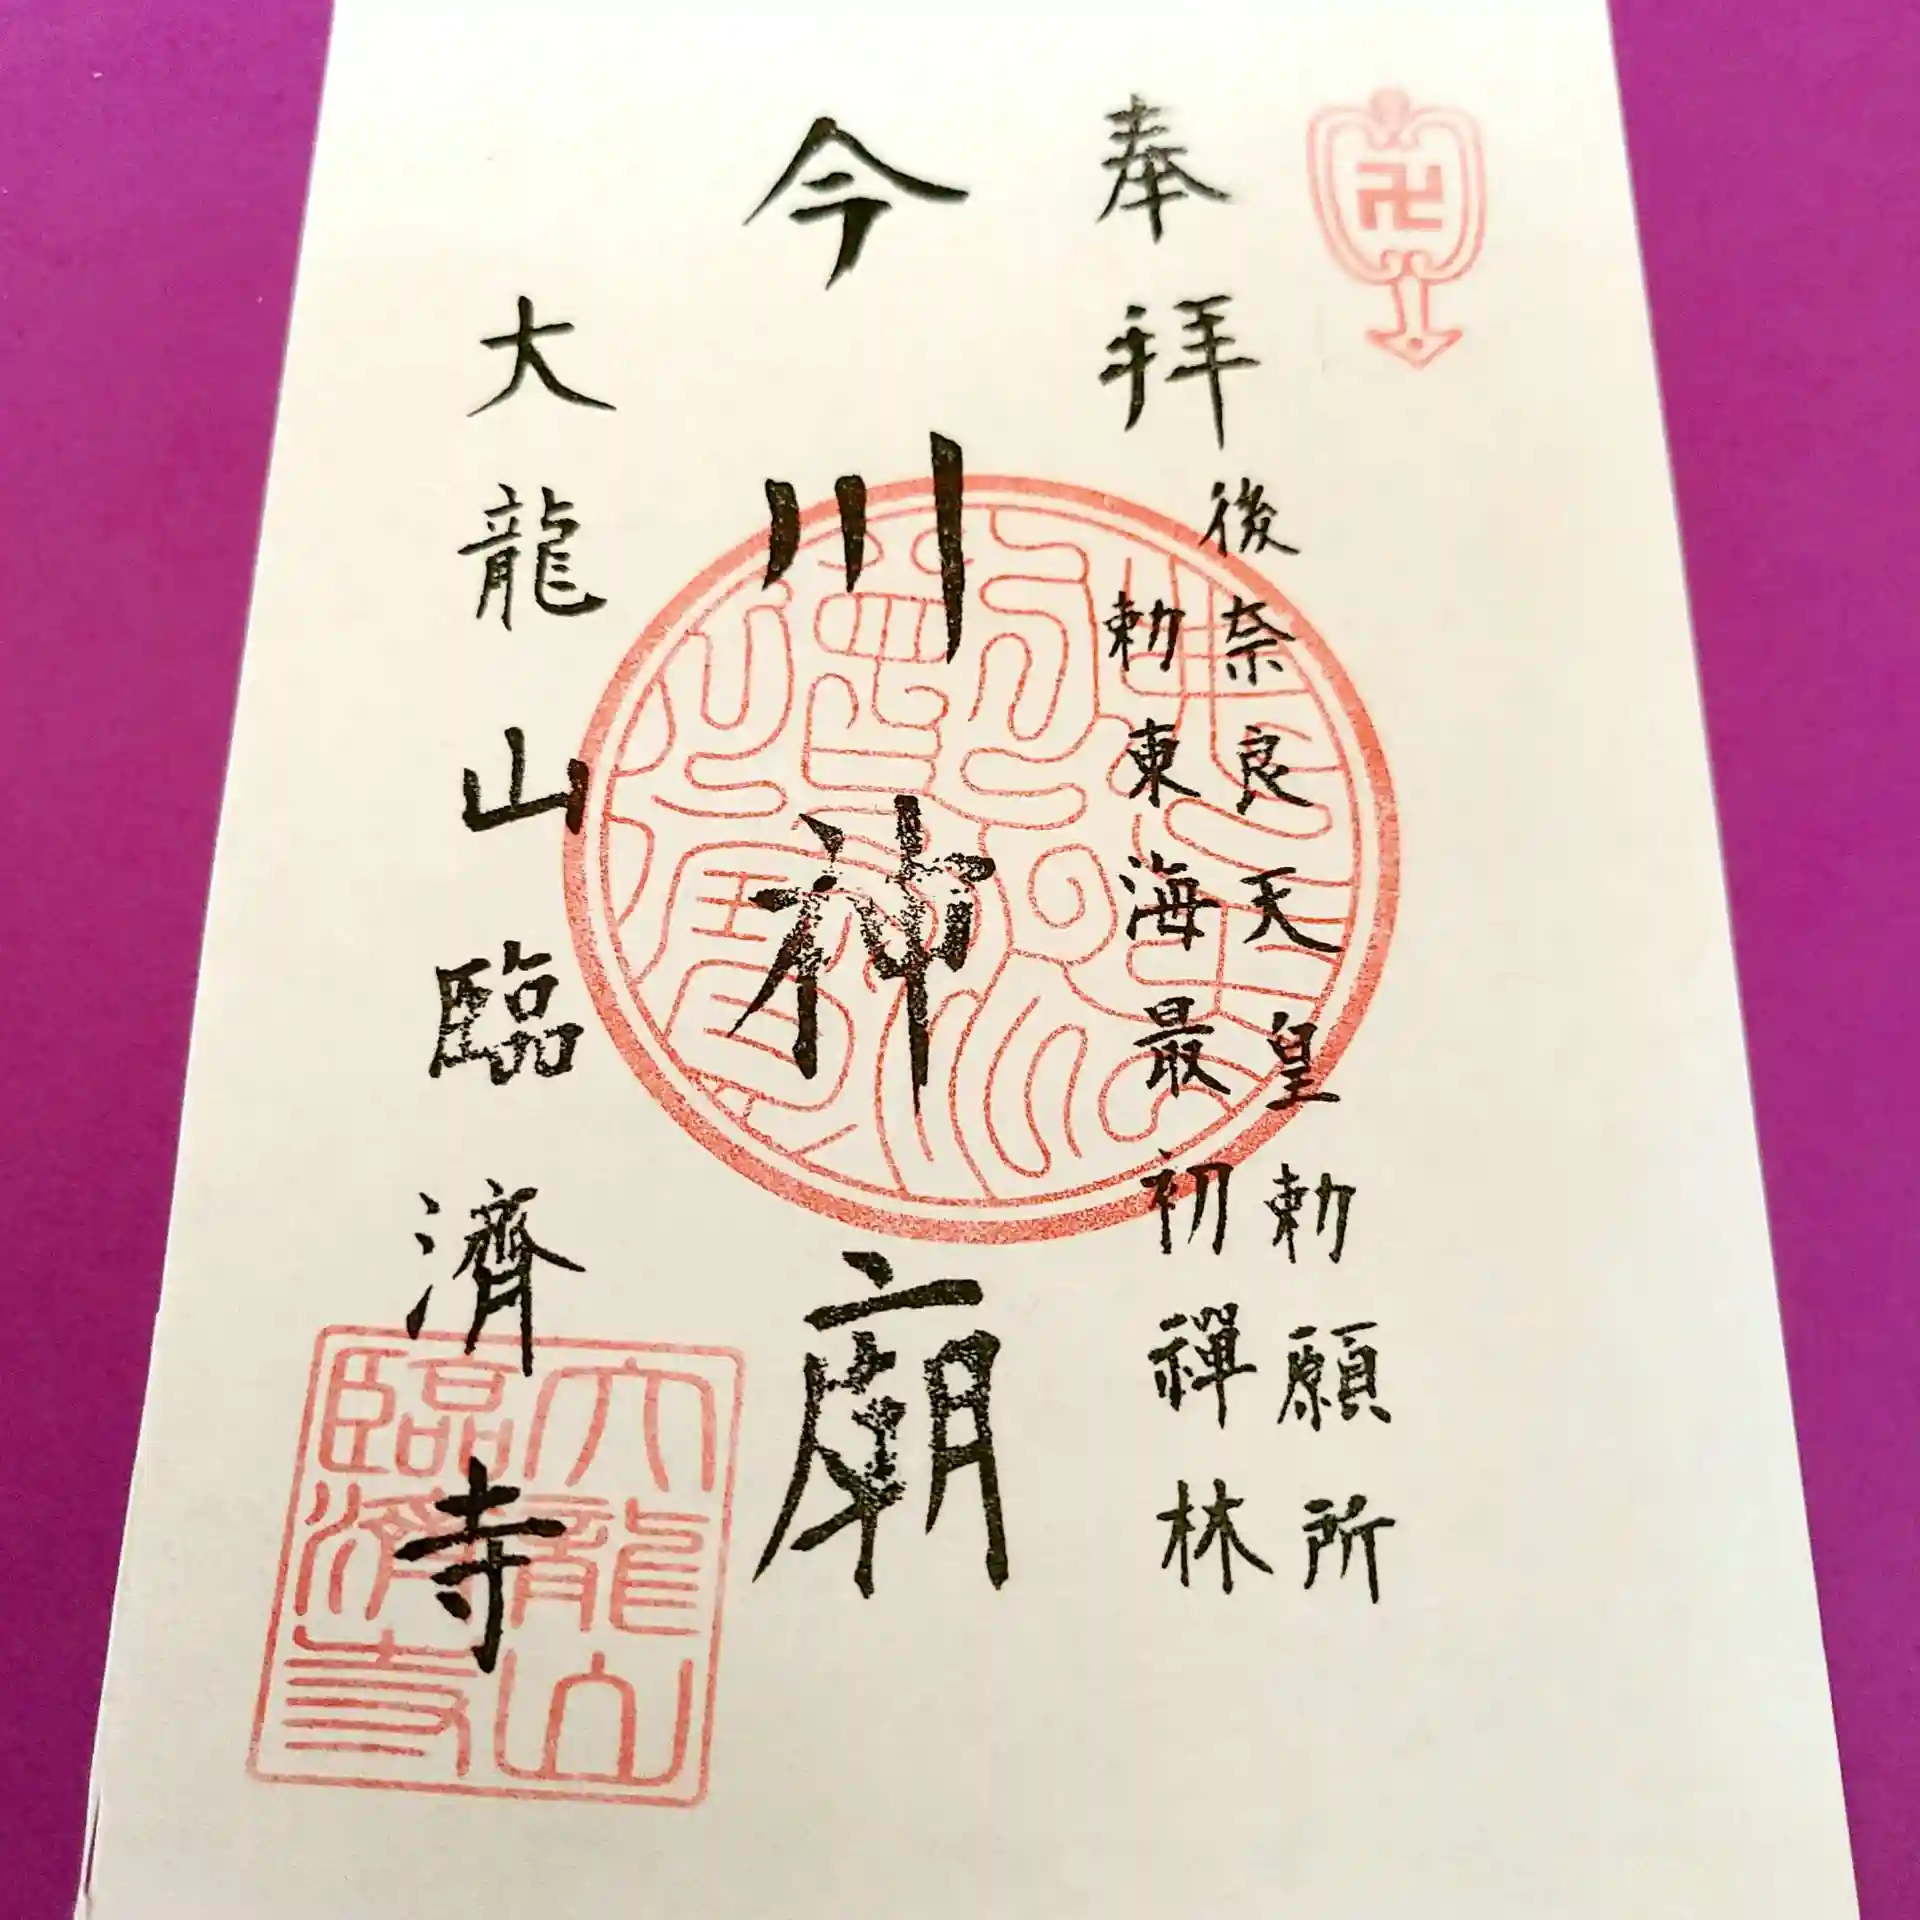 卍
奉拝
後奈良天皇勅願所
勅東海最初禅林
今川神廟
大龍山臨濟寺
大龍山
臨濟寺